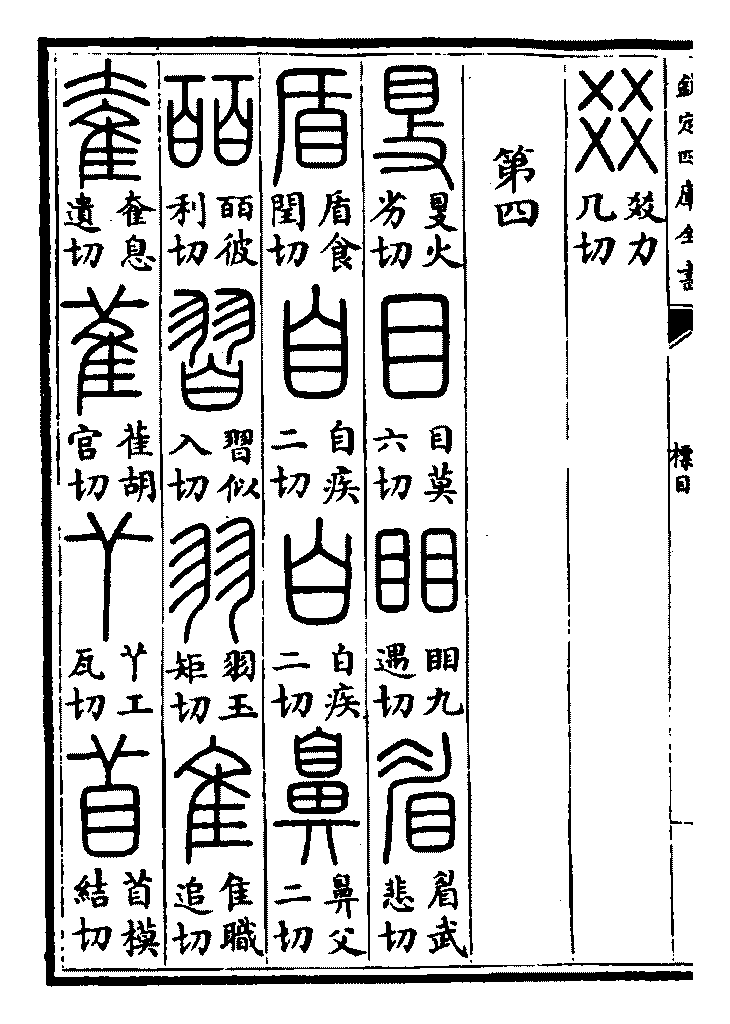 欽定四庫全書
標目
㸚 㸚力几切
第四
𥄎 𥄎火劣切 目 目莫六切 䀠 䀠九遇切 眉 眉武悲切
盾 盾食閏切 自 自疾二切 白 白疾二切 鼻 鼻父二切
皕 皕彼利切 習 習似入切 羽 羽玉矩切 隹 隹職追切
奞 奞息遺切 雈 雈胡官切 𦫳 𦫳工瓦切 苜 苜模結切